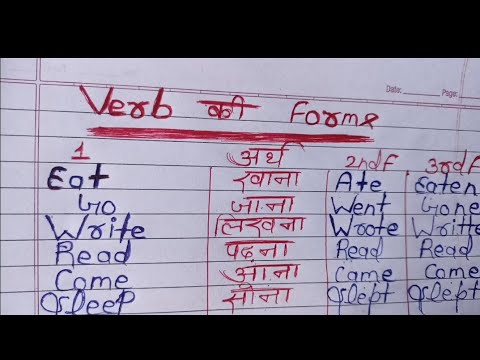 Verb की Forms
Date: Page:
1 अर्थ 2nd F 3rd F
Eat खाना Ate Eaten
Go जाना Went Gone
Write लिखना Wrote Writte
Read पढ़ना Read Read
Come आना Came Come
Sleep सोना Slept Slept